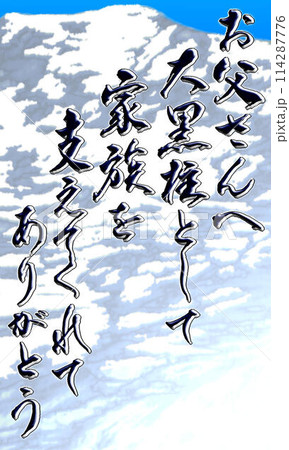 お父さんへ
大黒柱として
家族を
支えてくれて
ありがとう
pixta.jp - 114287776